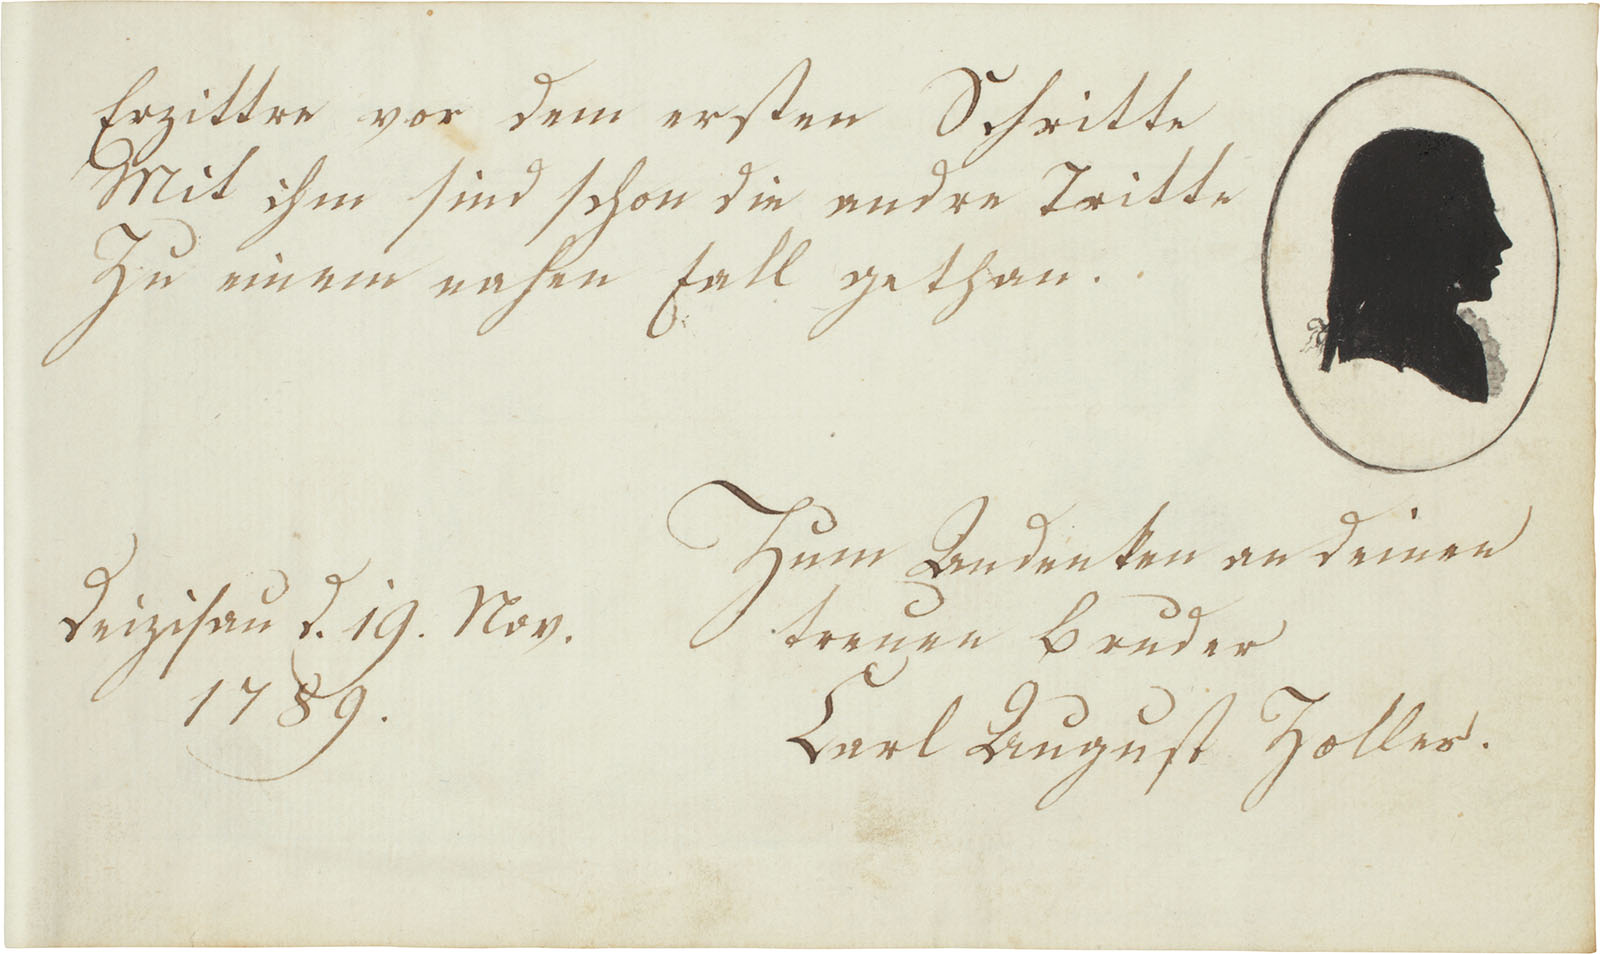 Erzittre vor dem ersten Schritte
Mit ihm sind schon die andre Tritte
Zu einem nahen Fall gethan.
Zum Andenken an deinen
treuen Bruder
Carl August Zoller.
Deizisau d. 19. Nov.
1789.